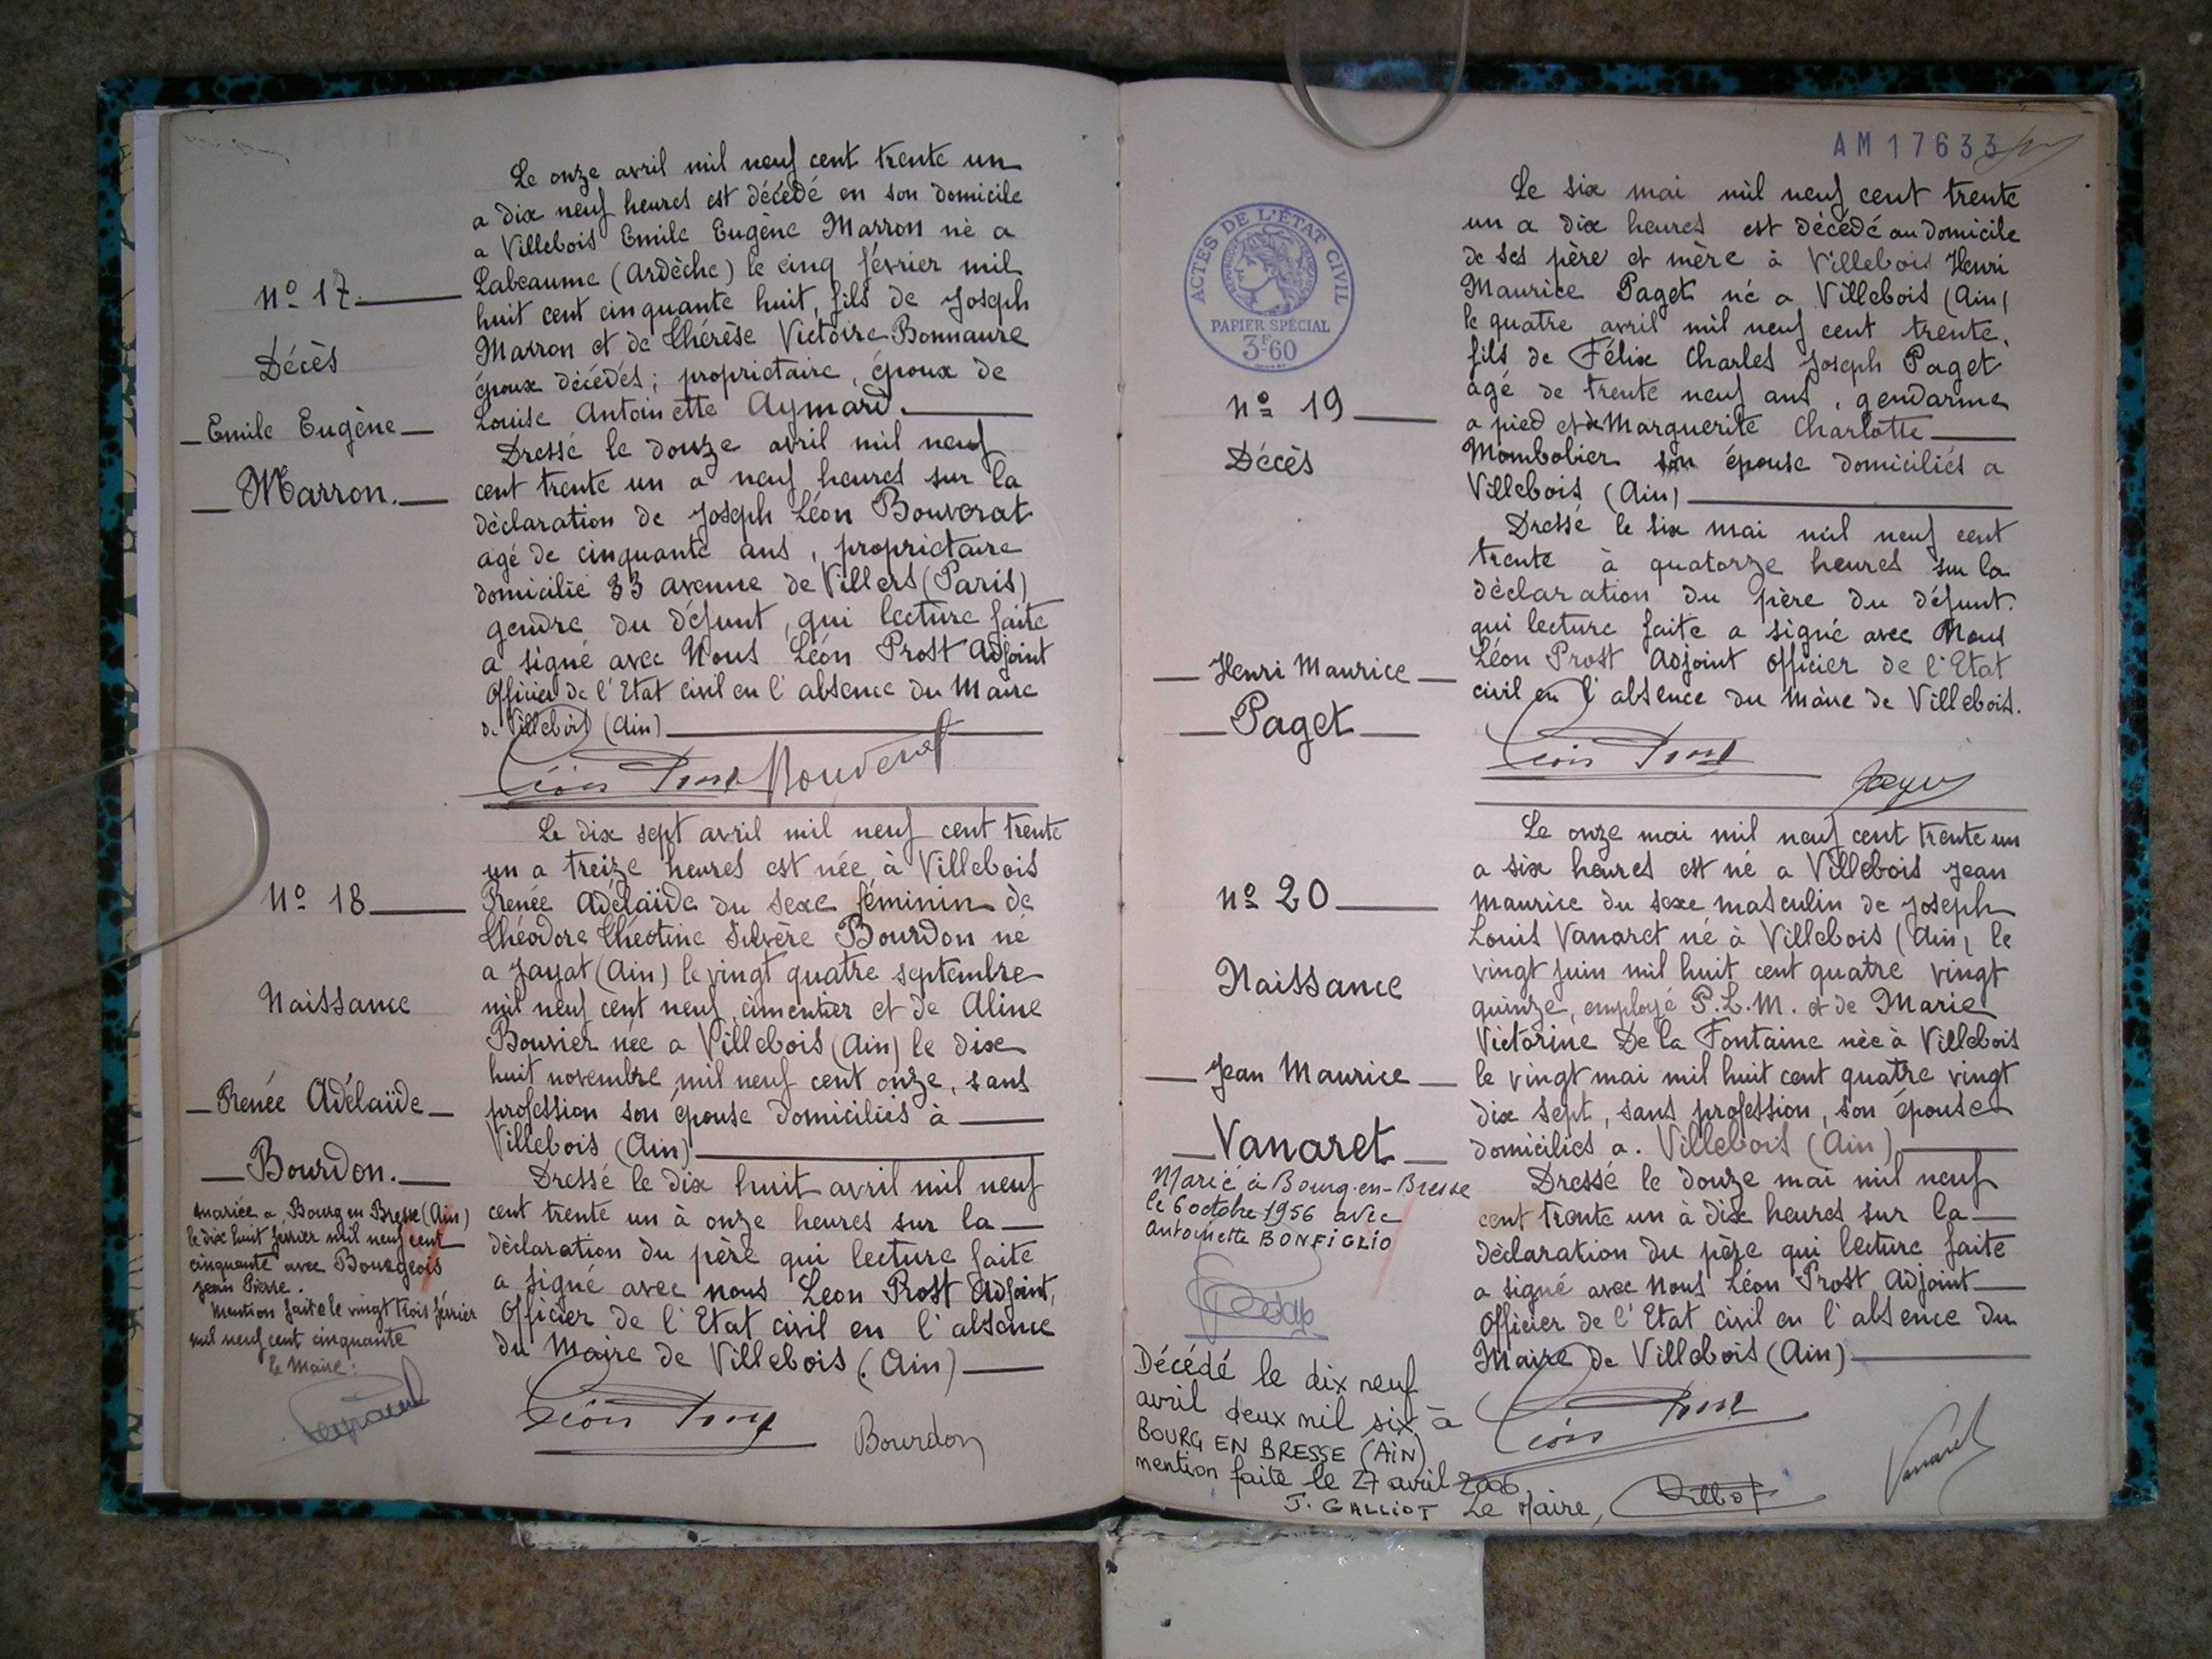 Nº 17.
Décès
Emile Eugène
Marron.
Le onze avril mil neuf cent trente un
a dix neuf heures est décédé en son domicile
a Villebois Emile Eugène Marron né a
Labeaume (Ardèche) le cinq février mil
huit cent cinquante huit, fils de Joseph
Marron et de Thérèse Victoire Bonnaure
époux décédés ; proprietaire, époux de
Louise Antoinette Aymard.
Dressé le douze avril mil neuf
cent trente un a neuf heures sur la
déclaration de Joseph Léon Bouverat
agé de cinquante ans, proprietaire
domicilié 33 avenue de Villers (Paris)
gendre du défunt, qui lecture faite
a signé avec Nous Léon Prost Adjoint
Officier de l'Etat civil en l'absence du Maire
de Villebois (Ain)
Léon Prost Bouverat
Nº 18
Naissance
Renée Adélaïde
Bourdon.
mariée a Bourg en Bresse (Ain)
le dix huit février mil neuf cent
cinquante avec Bourgeois
Jean Pierre.
Mention faite le vingt trois février
mil neuf cent cinquante
Le Maire :
Le dix sept avril mil neuf cent trente
un a treize heures est née, à Villebois
Renée Adélaïde du sexe féminin de
Théodore Théotine Silvère Bourdon né
a Jayat (Ain) le vingt quatre septembre
mil neuf cent neuf, cimentier et de Aline
Bouvier née a Villebois (Ain) le dix
huit novembre mil neuf cent onze, sans
profession son épouse domiciliés à
Villebois (Ain)
Dressé le dix huit avril mil neuf
cent trente un à onze heures sur la
déclaration du père qui lecture faite
a signé avec nous Leon Prost Adjoint,
Officier de l'Etat civil en l'absence
du Maire de Villebois (Ain)
Léon Prost
Bourdon
AM17633
ACTES DE L'ÉTAT CIVIL
PAPIER SPÉCIAL
3F60
nº 19
Décès
Henri Maurice
Paget
Le six mai mil neuf cent trente
un a dix heures est décédé au domicile
de ses père et mère à Villebois Henri
Maurice Paget né a Villebois (Ain)
le quatre avril mil neuf cent trente,
fils de Félix Charles Joseph Paget
agé de trente neuf ans, gendarme
a pied et de Marguerite Charlotte
Mombobier son épouse domiciliés a
Villebois (Ain)
Dressé le six mai mil neuf cent
trente à quatorze heures sur la
déclaration du père du défunt.
qui lecture faite a signé avec Nous
Léon Prost Adjoint Officier de l'Etat
civil en l'absence du Maire de Villebois.
Léon Prost
Paget
nº 20
Naissance
Jean Maurice
Vanaret
Marié à Bourg-en-Bresse
le 6 octobre 1956 avec
Antoinette BONFIGLIO
Décédé le dix neuf
avril deux mil six, à
BOURG EN BRESSE (AIN)
mention faite le 27 avril 2006
J. GALLIOT Le Maire,
Le onze mai mil neuf cent trente un
a six heures est né a Villebois Jean
Maurice du sexe masculin de Joseph
Louis Vanaret né à Villebois (Ain) le
vingt juin mil huit cent quatre vingt
quinze, employé P.L.M. et de Marie
Victorine De la Fontaine née à Villebois
le vingt mai mil huit cent quatre vingt
dix sept, sans profession, son épouse
domiciliés a. Villebois (Ain)
Dressé le douze mai mil neuf
cent trente un à dix heures sur la
déclaration du père qui lecture faite
a signé avec Nous Léon Prost Adjoint
Officier de l'Etat civil en l'absence du
Maire de Villebois (Ain)
Léon Prost
Vanaret